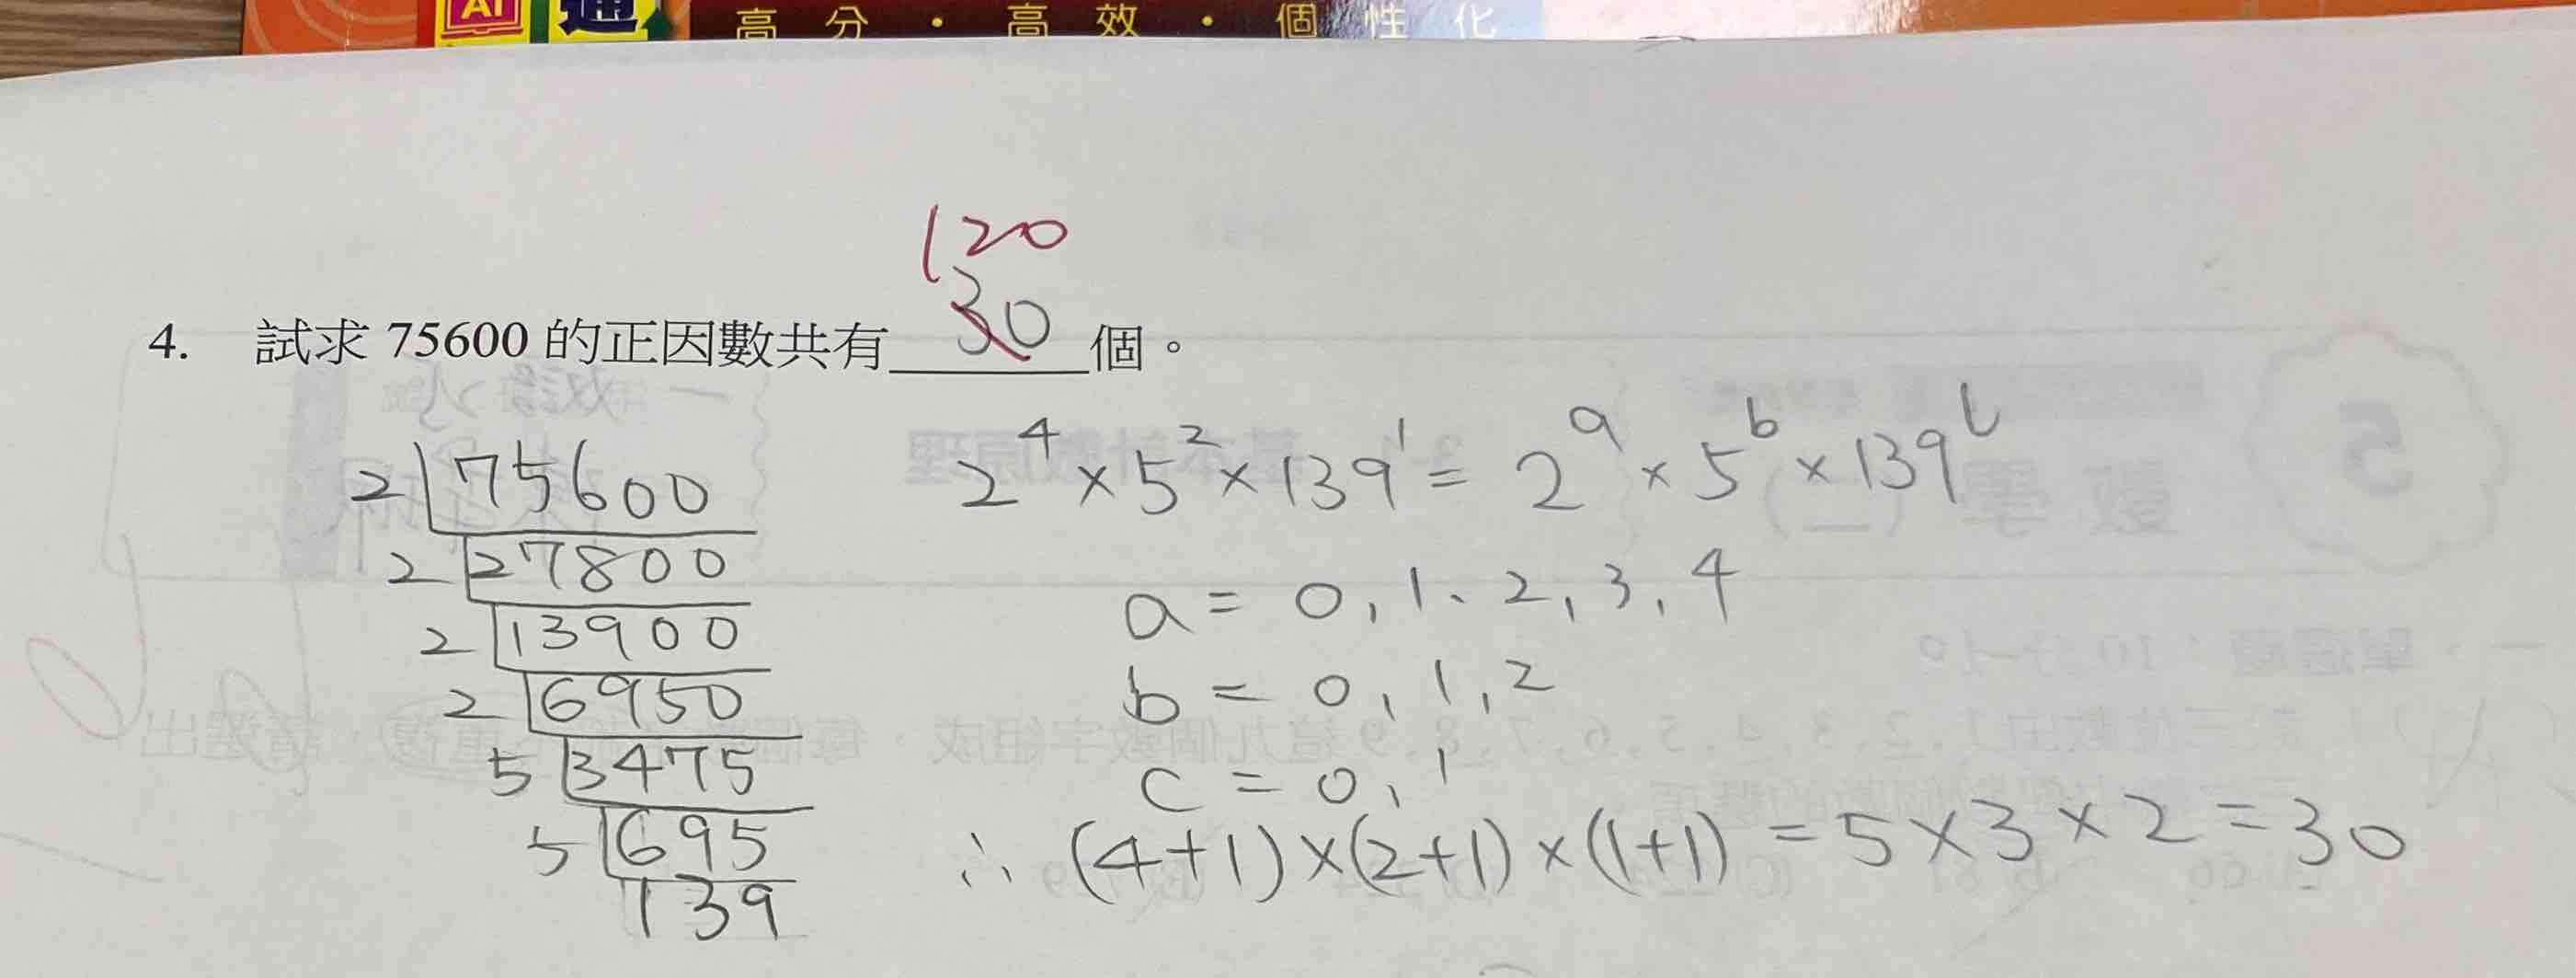 AI 通
高分・高效・個性化
120
4. 試求 75600 的正因數共有 30 個。
2 75600
2 27800
2 13900
2 6950
5 3475
5 695
139
2⁴×5²×139¹=2ᵃ×5ᵇ×139ᶜ
a=0,1、2,3,4
b=0,1,2
c=0、1
∴(4+1)×(2+1)×(1+1)=5×3×2=30